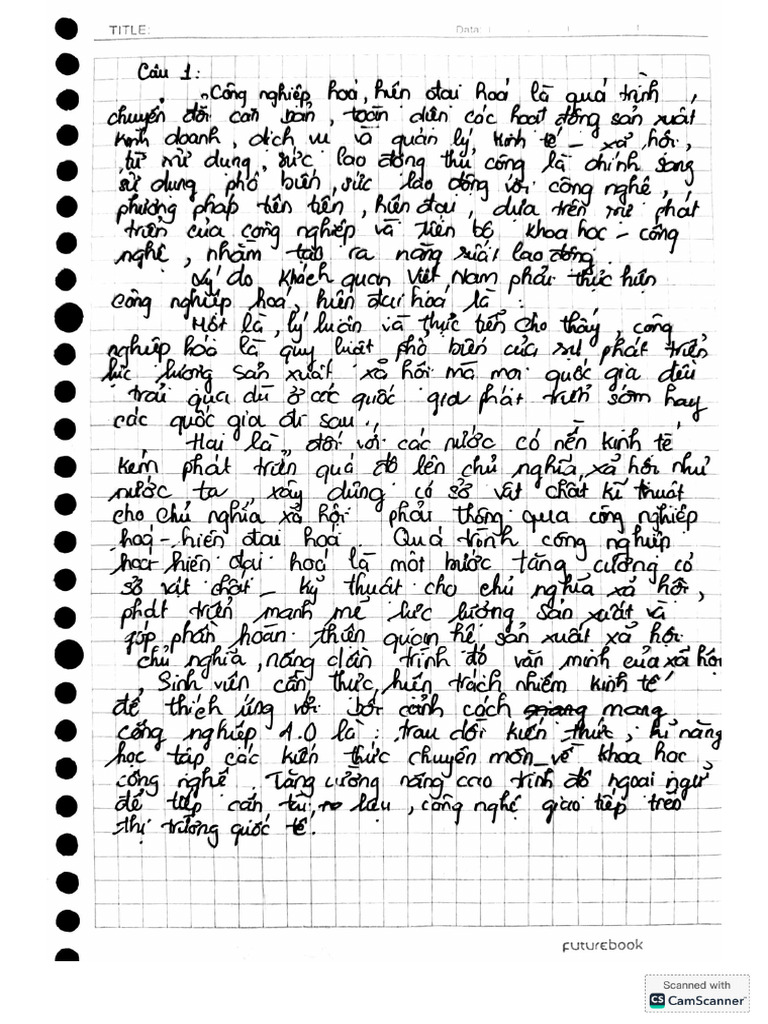 TITLE:
Data:
Câu 1:
Công nghiệp hoá, hiến đại hoá là quá trình
chuyển đổi căn bản, toàn diên các hoạt động sản xuất
kinh doanh, dịch vu và quản lý, kinh tế - xã hội,
từ sử dung, sức lao động thủ công là chính sang
sử dung phổ biến, sức lao động với công nghê,
phương pháp tiên tiến, hiên đại, dưa trên sư phát
triển của cộng nghiệp và tiến bộ khoa học - công
nghê, nhằm tạo ra năng suất lao động.
Lý do khách quan Viêt Nam phải thực hiện
công nghiêp hoá, hiên đại hoá là :
Một là, lý luân và thực tiễn cho thấy, công
nghiêp hóa là quy luât phổ biến của sư phát triển
lưc lương sản xuất xã hôi mà moi quốc gia đều
trải qua dù ở các quốc gia phát triển sớm hay
các quốc gia đi sau.
Hai là, đối với các nước có nền kinh tế
kém phát triển quá đô lên chủ nghĩa xã hôi như
nước ta, xây dưng cơ sở vât chất kĩ thuât
cho chủ nghĩa xã hội phải thông qua công nghiêp
hoá - hiên đai hoá. Quá trình công nghiêp
hiên đại hoá là môt bước tăng cường cơ
sở vât chất - kỹ thuât cho chủ nghĩa xã hôi,
phát triển manh mẽ lưc lương sản xuất và
góp phần hoàn thiên quan hê sản xuất xã hôi
chủ nghĩa, nâng dần trình đô văn minh của xã hôi
Sinh viên cần thưc hiên trách nhiêm kinh tế
để thích ứng với bối cảnh cách mang
công nghiêp 4.0 là : trau dồi kiến thức, kĩ năng
học tâp các kiến thức chuyên môn về khoa học
công nghê. Tăng cường nâng cao trình đô ngoai ngữ
để tiếp cân tài liêu, công nghê giao tiếp trên
thị trường quốc tế.
FUTUREBOOK
Scanned with
CS CamScanner